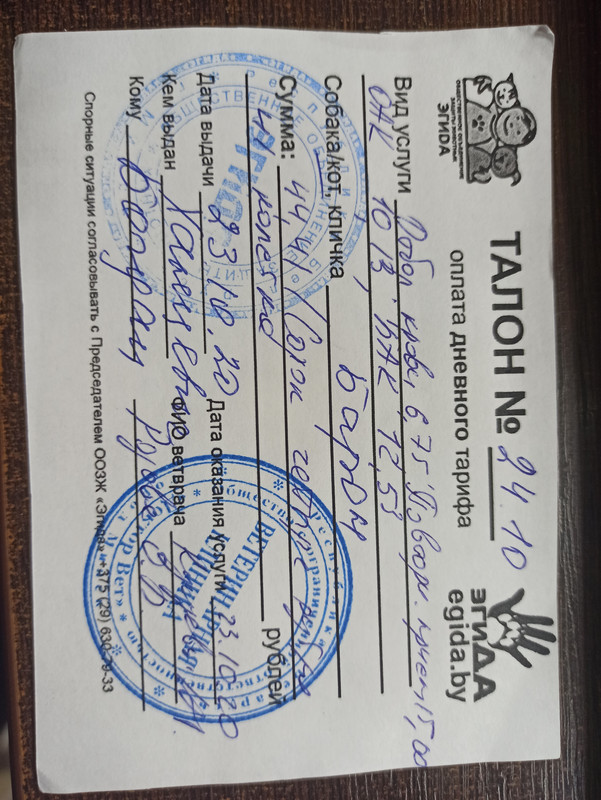 ОБЩЕСТВЕННОЕ ОБЪЕДИНЕНИЕ
ЗАЩИТЫ ЖИВОТНЫХ
ЭГИДА
ТАЛОН № 24.10
оплата дневного тарифа
ЭГИДА
egida.by
Вид услуги Забор крови 6,75 Повторн. прием 15,00
ОАК 10,13 БАК 12,53
Собака/кот, кличка Барон
Сумма: 44,41 (Сорок четыре рубля
41 копейка рублей
Дата выдачи 23.10.20 Дата оказания услуги 23.10.20
Кем выдан ФИО ветврача
Кому
Спорные ситуации согласовывать с Председателем ООЗЖ «Эгида» +375 (29) 630-